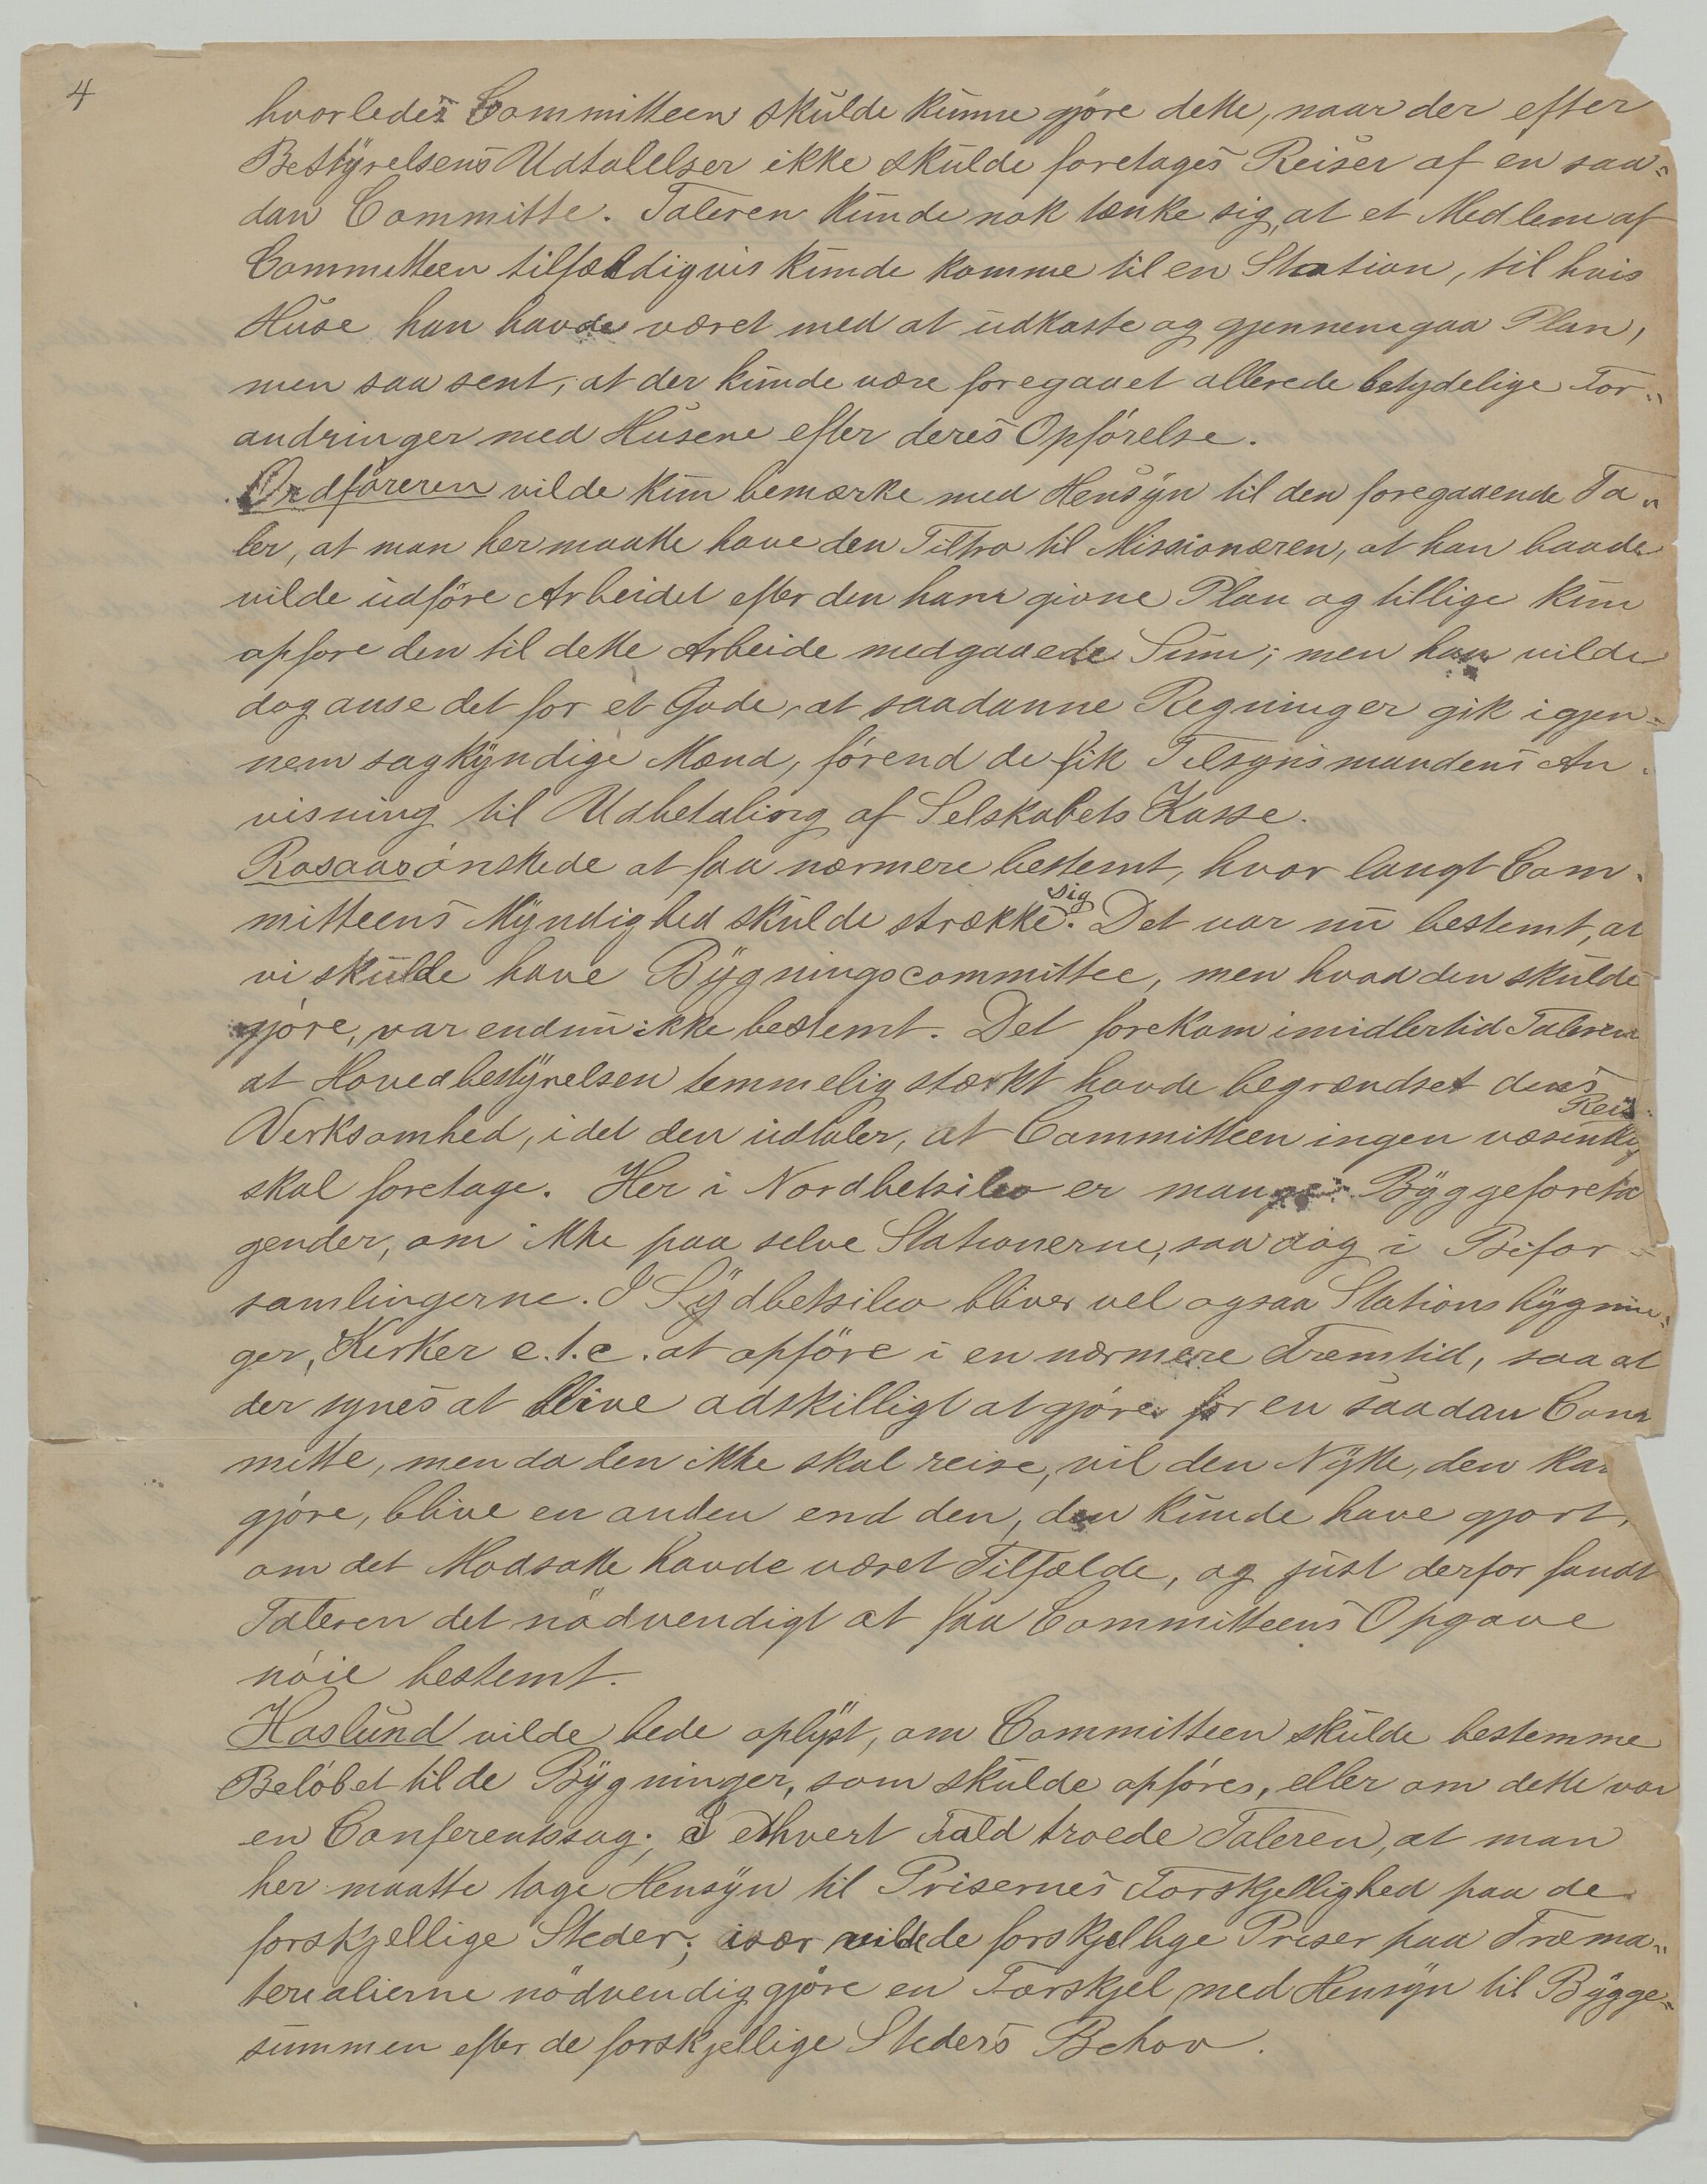 4
hvorledes Committeen skulde kunne gjöre dette, naar der efter
Bestyrelsens Udtalelser ikke skulde foretages Reiser af en saa-
dan Committe. Taleren kunde nok tænke sig, at et Medlem af
Committeen tilfældigvis kunde komme til en Station, til hvis
Huse han havde været med at udkaste og gjennemgaa Plan,
men saa sent, at der kunde være foregaaet allerede betydelige For-
andringer med Husene efter deres Opförelse.
Ordföreren vilde kun bemærke med Hensyn til den foregaaende Ta-
ler, at man her maatte have den Tiltro til Missionæren, at han baade
vilde udföre Arbeidet efter den ham givne Plan og tillige kun
opföre den til dette Arbeide medgaaede Sum; men han vilde
dog anse det for et Gode, at saadanne Regninger gik igjen-
nem sagkyndige Mænd, förend de fik Tilsynsmandens An-
visning til Udbetaling af Selskabets Kasse.
Rosaas önskede at faa nærmere bestemt, hvor langt Com-
mitteens Myndighed skulde strække sig. Det var nu bestemt, at
vi skulde have Bygningscommittee, men hvad den skulde
gjöre, var endnu ikke bestemt. Det forekom imidlertid Taleren
at Hovedbestyrelsen temmelig stærkt havde begrændset dens
Verksomhed, idet den udtaler, at Committeen ingen væsentlig Reis
skal foretage. Her i Nordbetsileo er mange Byggeforeta
gender, om ikke paa selve Stationerne, saa dog i Bifor-
samlingerne. I Sydbetsileo bliver vel ogsaa Stationsbygnin-
ger, Kirker e.t.c. at opföre i en nærmere Fremtid, saa at
der synes at blive adskilligt at gjöre for en saadan Com
mitte, men da den ikke skal reise, vil den Nytte, den kan
gjöre, blive en anden end den, den kunde have gjort,
om det Modsatte havde været Tilfælde, og just derfor fandt
Taleren det nödvendigt at faa Committeens Opgave
nöie bestemt.
Haslund vilde bede oplyst, om Committeen skulde bestemme
Belöbet til de Bygninger, som skulde opföres, eller om dette var
en Conferentssag; i ethvert Fald troede Taleren, at man
her maatte tage Hensyn til Prisernes Forskjellighed paa de
forskjellige Steder; især vilde de forskjellige Priser paa Træma-
terialierne nödvendiggjöre en Forskjel med Hensyn til Bygge-
summen efter de forskjellige Steders Behov.